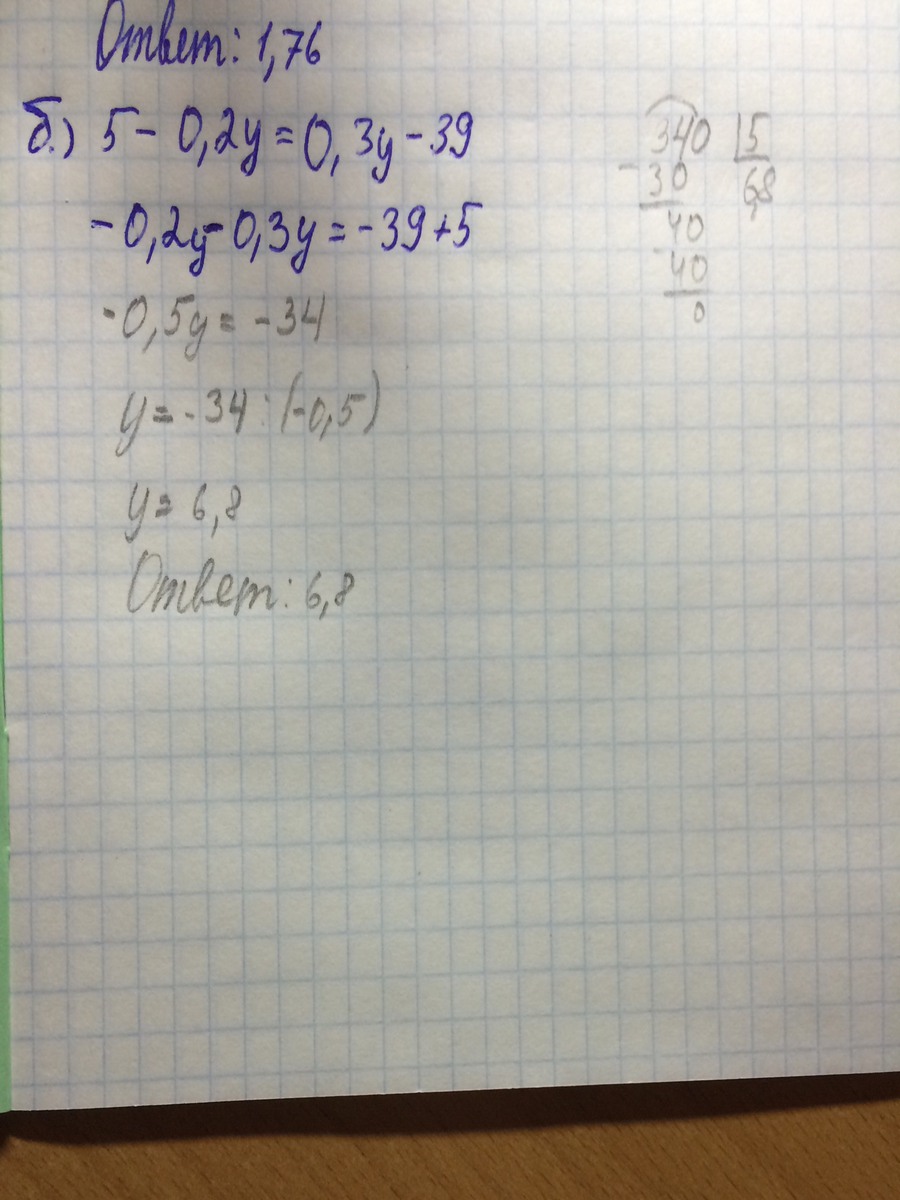 Ответ: 1,76
б.) 5 - 0,2y = 0,3y - 39
-0,2y - 0,3y = -39 + 5
-0,5y = -34
y = -34 : (-0,5)
y = 6,8
Ответ: 6,8
340 | 5
- 30 68
40
- 40
0